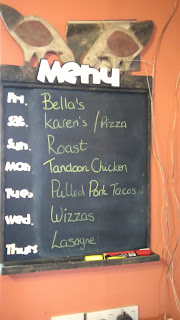 Menu
Fri. Bella's
Sat. Karen's / Pizza
Sun. Roast
Mon Tandoori Chicken
Tues Pulled Pork Tacos
Wed. Wizzas
Thurs Lasagne